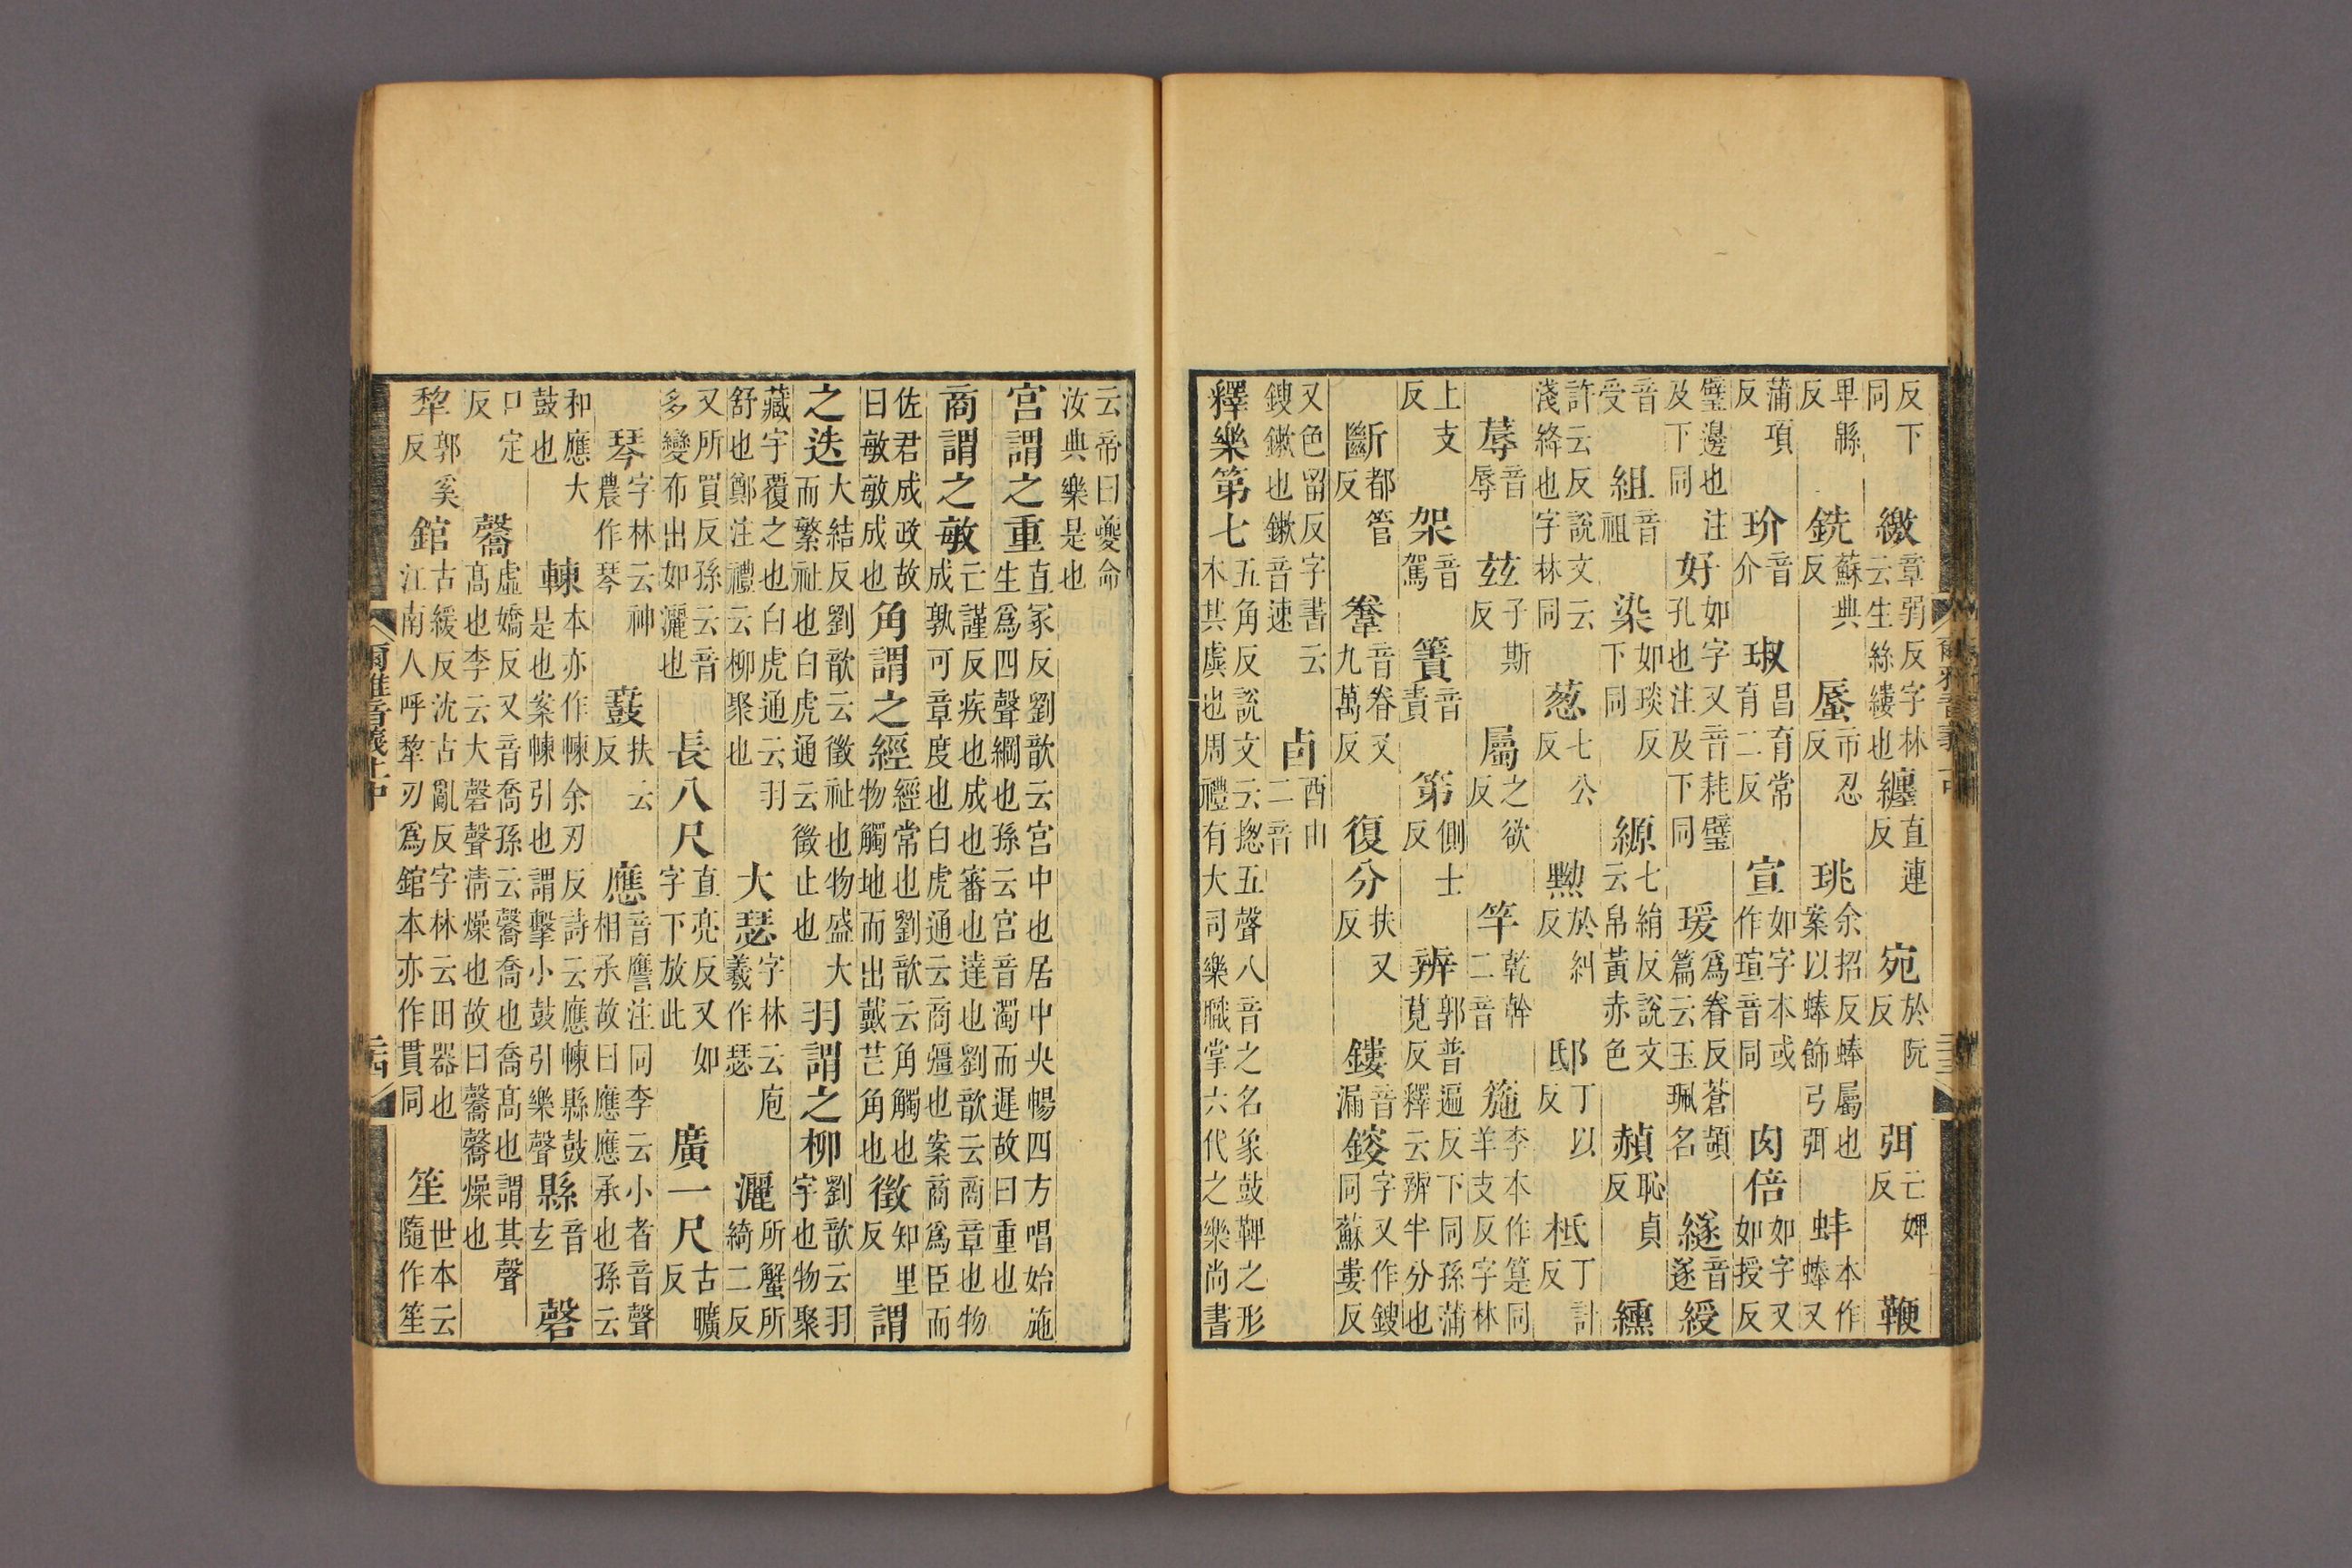 反下同繳章弱反字林云生絲縷也纏直連反宛於阮反弭亡婢反鞭
卑緜反銑蘇典反蜃市忍反珧余招反蜯屬也案以蜯飾弓弭蚌本作蜯又
蒲項反玠音介琡昌育常育二反宣如字本或作瑄音同肉倍如字又如授反
璧邊也注及下同好如字又音耗璧孔也注及下同瑗爲眷反蒼頡篇云玉珮名繸音遂綬
音受組音祖染如琰反下同縓七絹反說文云帛黃赤色赬恥貞反纁
許云反說文云淺絳也字林同葱七公反黝於糾反邸丁以反柢丁計反
蓐音辱茲子斯反屬之欲反竿乾幹二音箷李本作筵同羊支反字林
上支反架音駕簀音責第側士反辨郭普遍反下同孫蒲莧反釋云辨半分也
斷都管反韏音眷又九萬反復分扶又反鏤音漏鋑字又作鎪同蘇婁反
又色留反字書云鎪鏉也鏉音速卣酉由二音
釋樂第七五角反說文云揔五聲八音之名象鼓鞞之形木其虡也周禮有大司樂職掌六代之樂尚書
云帝曰夔命汝典樂是也
宮謂之重直冢反劉歆云宮中也居中央暢四方唱始施生爲四聲綱也孫云宮音濁而遲故曰重也
商謂之敏亡謹反疾也成也審也達也劉歆云商章也物成孰可章度也白虎通云商彊也案商爲臣而
佐君成政故曰敏敏成也角謂之經經常也劉歆云角觸也物觸地而出戴芒角也徵知里反謂
之迭大結反劉歆云徵祉也物盛大而繁祉也白虎通云徵止也羽謂之柳劉歆云羽宇也物聚
藏宇覆之也白虎通云羽舒也鄭注禮云柳聚也大瑟字林云庖羲作瑟灑所蟹所綺二反
又所買反孫云音多變布出如灑也長八尺直亮反又如字下放此廣一尺古曠反
琴字林云神農作琴鼖扶云反應音譍注同李云小者音聲相承故曰應應承也孫云
和應大鼓也朄本亦作㯥余刃反詩云應㯥縣鼓是也案㯥引也謂擊小鼓引樂聲縣音玄磬
口定反毊虛嬌反又音喬孫云毊喬也喬高也謂其聲高也李云大磬聲清燥也故曰毊毊燥也
犂郭奚反錧古緩反沈古亂反字林云田器也江南人呼犂刃爲錧本亦作貫同笙世本云隨作笙
爾雅音義上中
二十四